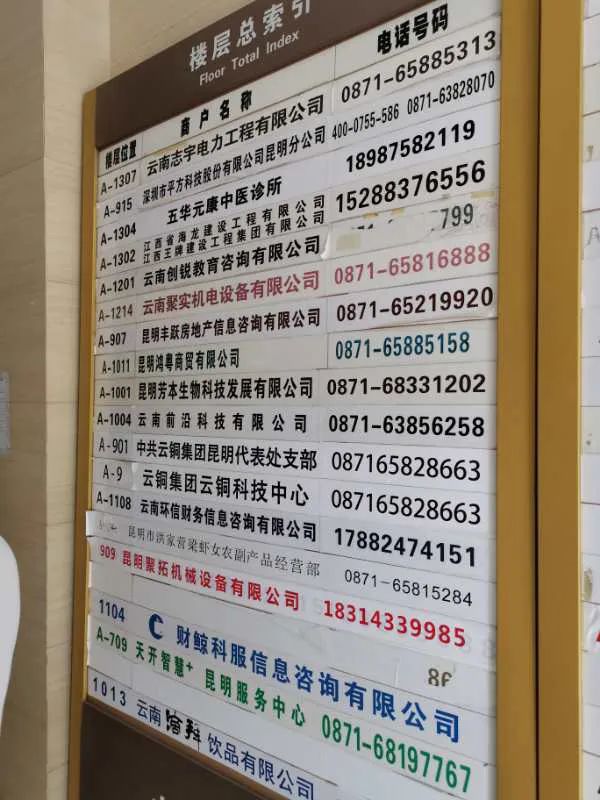 楼层总索引
Floor Total Index
楼层位置 商户名称 电话号码
A-1307 云南志宇电力工程有限公司 0871-65885313
A-915 深圳市平方科技股份有限公司昆明分公司 400-0755-586 0871-63828070
A-1304 五华元康中医诊所 18987582119
A-1302 江西省海龙建设工程有限公司 15288376556
江西王牌建设工程集团有限公司
A-1201 云南创锐教育咨询有限公司 799
A-1214 云南聚实机电设备有限公司 0871-65816888
A-907 昆明丰跃房地产信息咨询有限公司 0871-65219920
A-1011 昆明鸿粤商贸有限公司 0871-65885158
A-1001 昆明芳本生物科技发展有限公司 0871-68331202
A-1004 云南前沿科技有限公司 0871-63856258
A-901 中共云铜集团昆明代表处支部 087165828663
A-9 云铜集团云铜科技中心 087165828663
A-1108 云南环信财务信息咨询有限公司 17882474151
昆明市洪家营梁虾女农副产品经营部 0871-65815284
909 昆明聚拓机械设备有限公司 18314339985
1104 财鲸科服信息咨询有限公司
A-709 天开智慧+ 昆明服务中心 0871-68197767
1013 云南 饮品有限公司